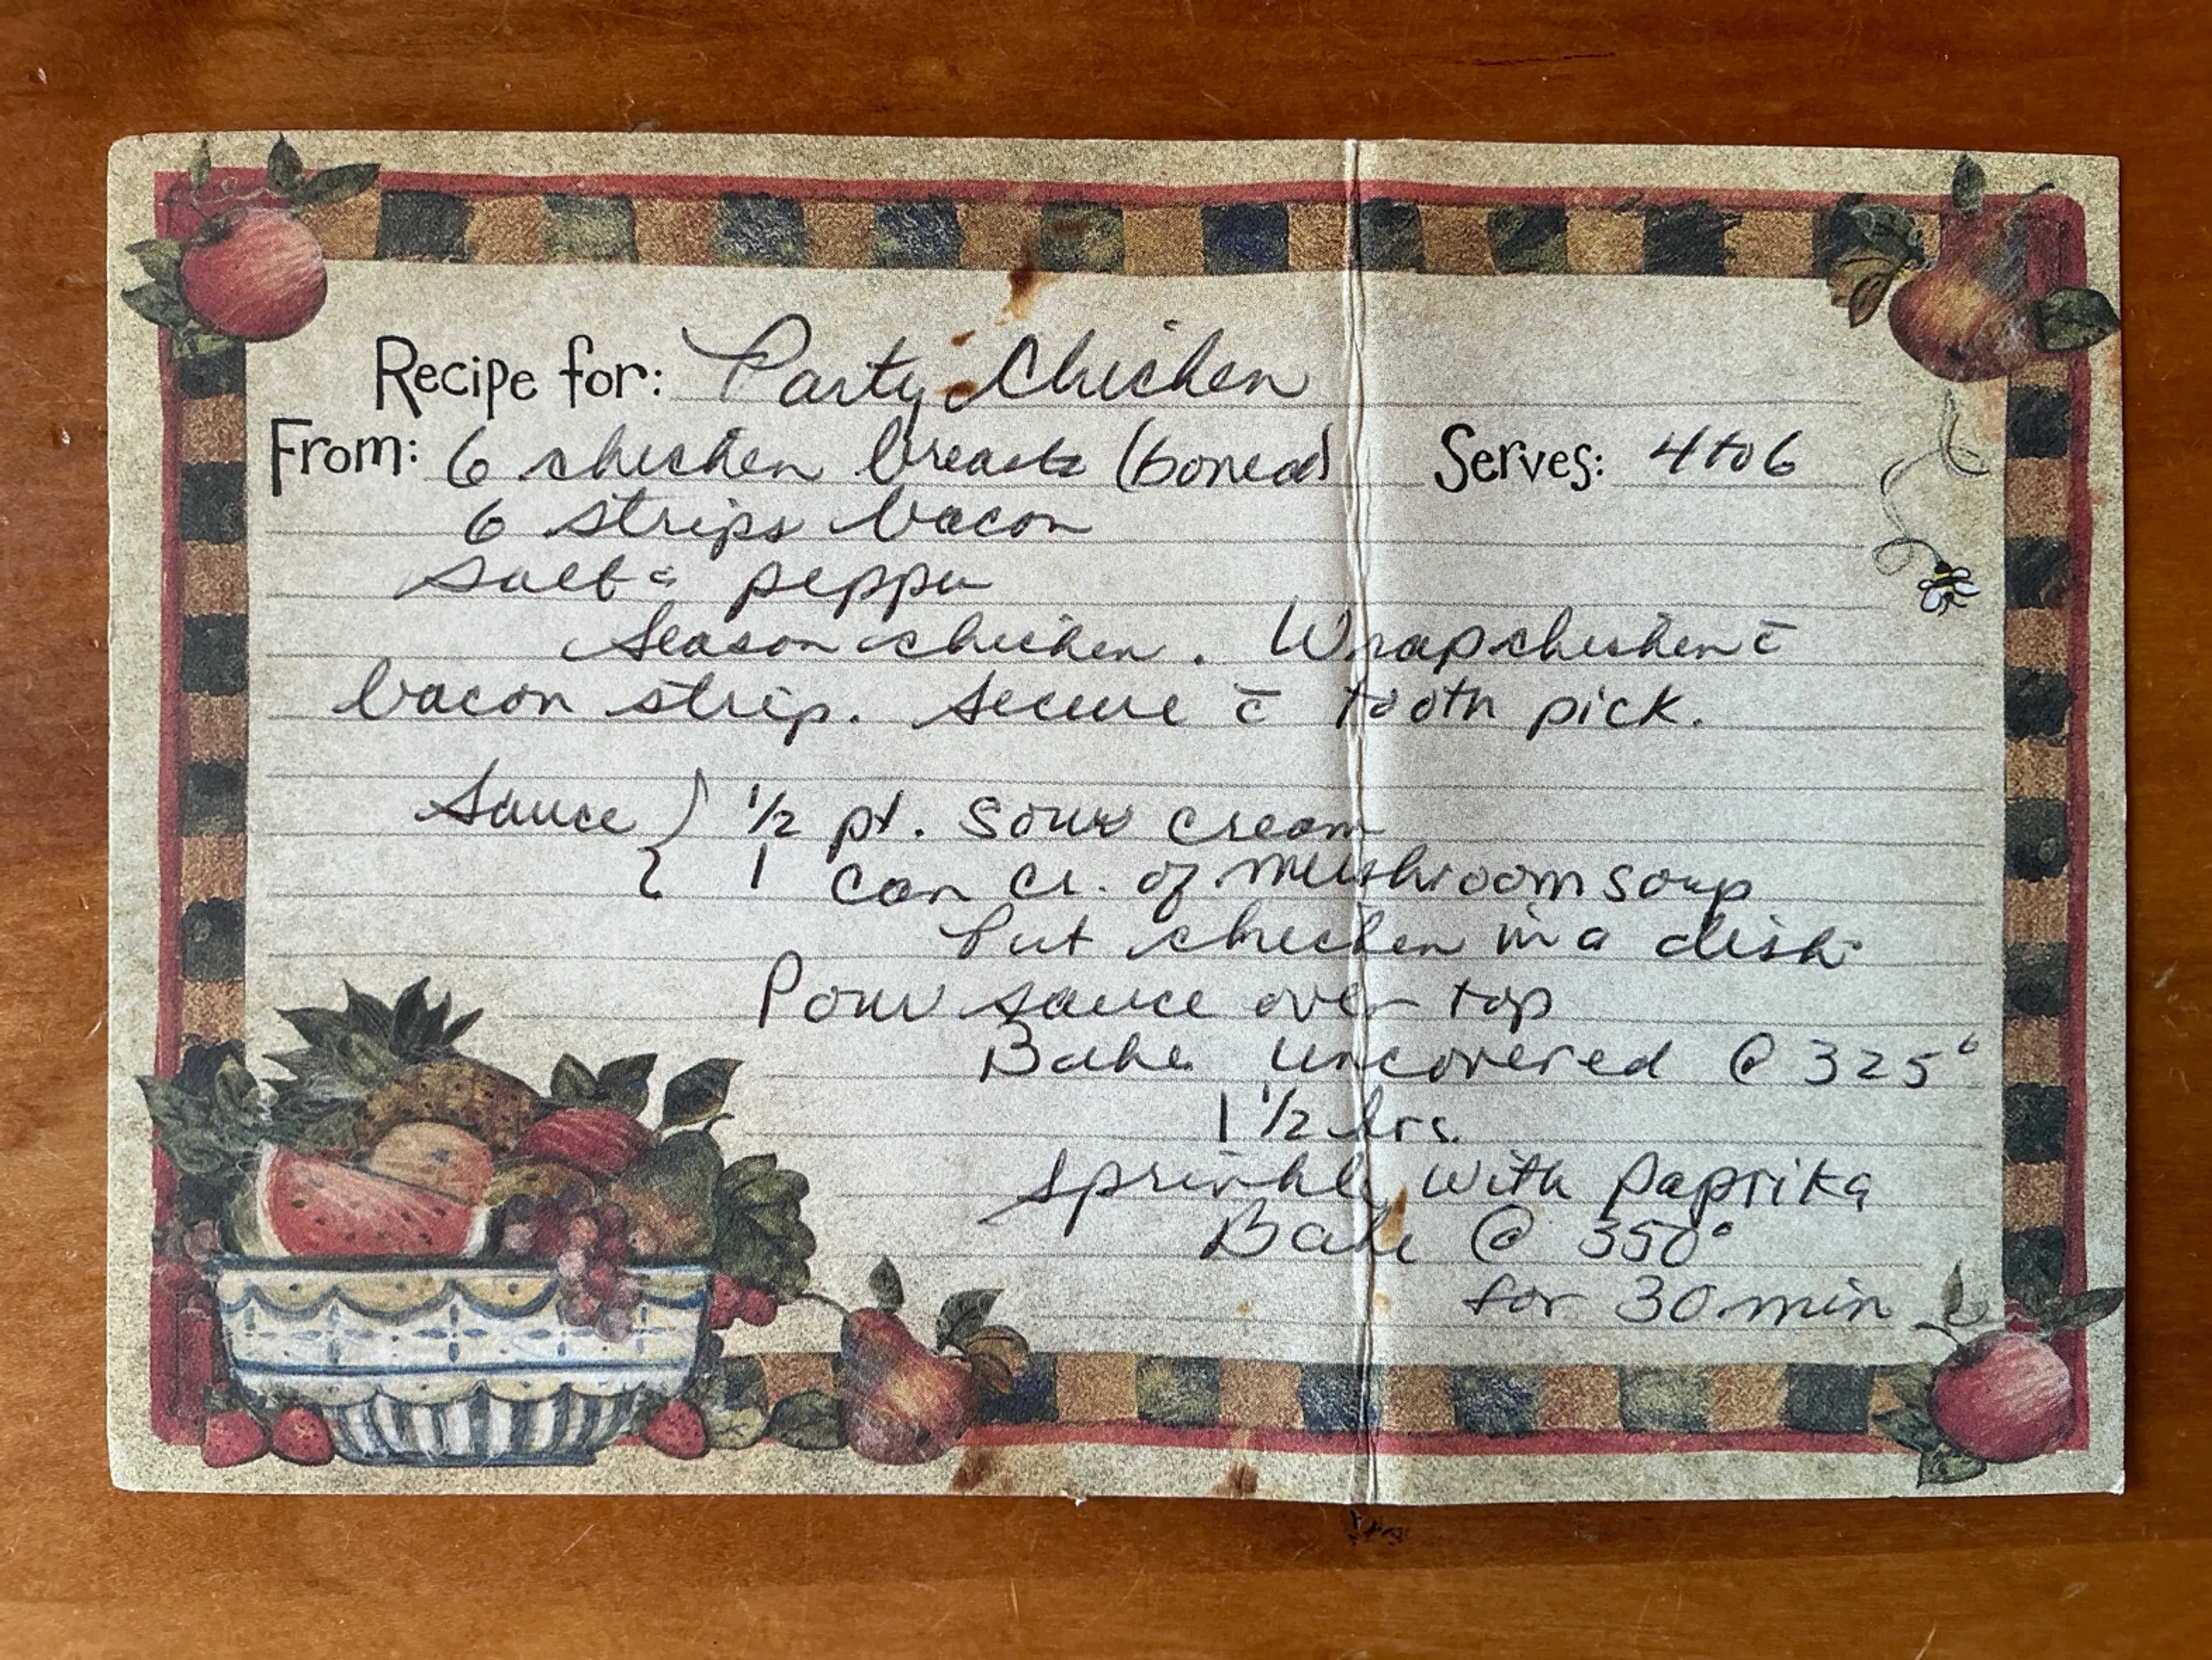 Recipe for: Party Chicken
From: 6 chicken breasts (boned) Serves: 4 to 6
6 strips bacon
Salt & pepper
Season chicken. Wrap chicken c̄
bacon strip. Secure c̄ tooth pick.
Sauce } 1/2 pt. sour cream
1 can cr. of mushroom soup
Put chicken in a dish
Pour sauce over top
Bake uncovered @ 325°
1 1/2 hrs.
Sprinkle with paprika
Bake @ 350°
for 30 min